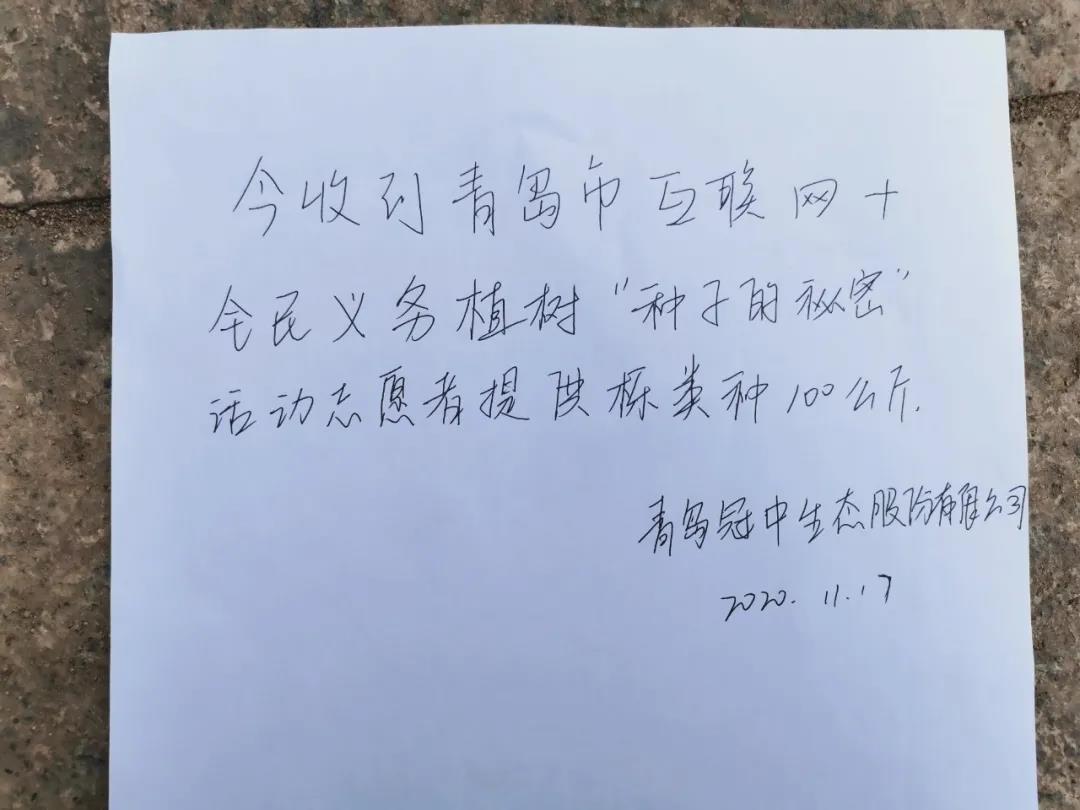 今收到青岛市互联网+
全民义务植树“种子的秘密”
活动志愿者提供栎类种100公斤.
青岛冠中生态股份有限公司
2020.11.17